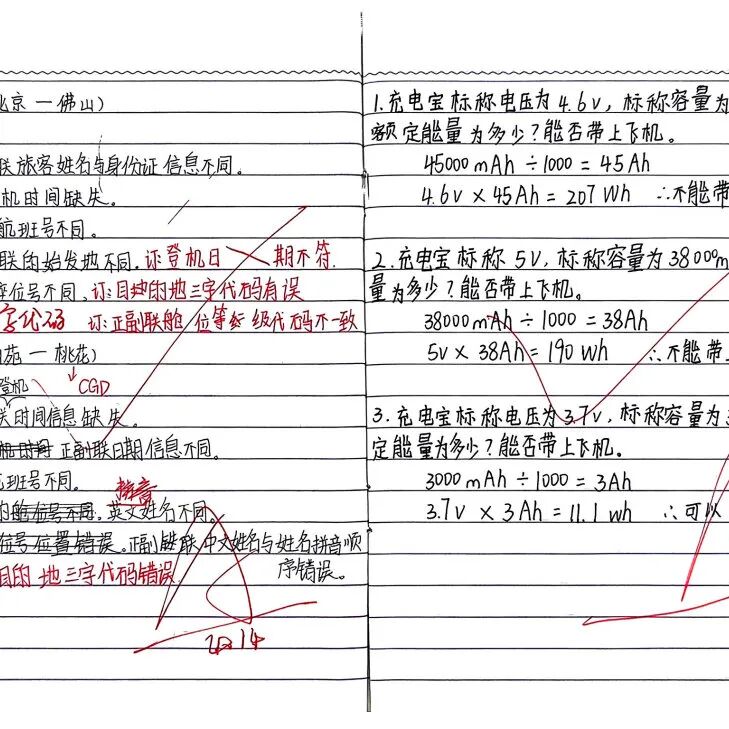 北京一佛山)
联旅客姓名与身份证信息不同。
机时间缺失。
航班号不同。
联的始发地不同. 证:登机日期不符.
位号不同. 证:目地的地三字代码有误
字代码 证:正副联舱位等级代码不一致
一桃花)
登机 CGD
时间信息缺失.
正副联日期信息不同。
班号不同。
拼音
的座位号不同. 英文姓名不同。
位号位置错误。正副联中文姓名与姓名拼音顺序错误。
目的地三字代码错误
1.充电宝标称电压为4.6v,标称容量为
额定能量为多少?能否带上飞机。
45000mAh÷1000=45Ah
4.6v×45Ah=207Wh ∴不能带
2.充电宝标称5V,标称容量为38000m
量为多少?能否带上飞机。
38000mAh÷1000=38Ah
5v×38Ah=190Wh ∴不能带
3.充电宝标称电压为3.7v,标称容量为3
定能量为多少?能否带上飞机。
3000mAh÷1000=3Ah
3.7v×3Ah=11.1wh ∴可以